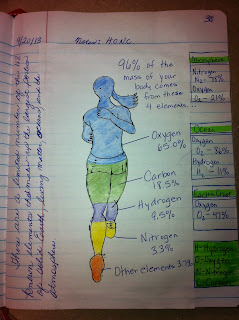 30
9/20/13
Notes: HONC
96% of the
mass of your
body comes
from these
4 elements...
Oxygen
65.0%
Carbon
18.5%
Hydrogen
9.5%
Nitrogen
3.3%
Other elements 3.7%
There are a limited number of the 92
elements that make up the
of Earth's living matter, oceans and the
atmosphere
Atmosphere
Nitrogen
N₂ - 78%
Oxygen
O₂ - 21%
Ocean
Oxygen
O₂ - 86%
Hydrogen
H₂ - 11%
Earth's Crust
Oxygen
O₂ - 47%
H-Hydrogen
O-Oxygen
N-Nitrogen
C-Carbon